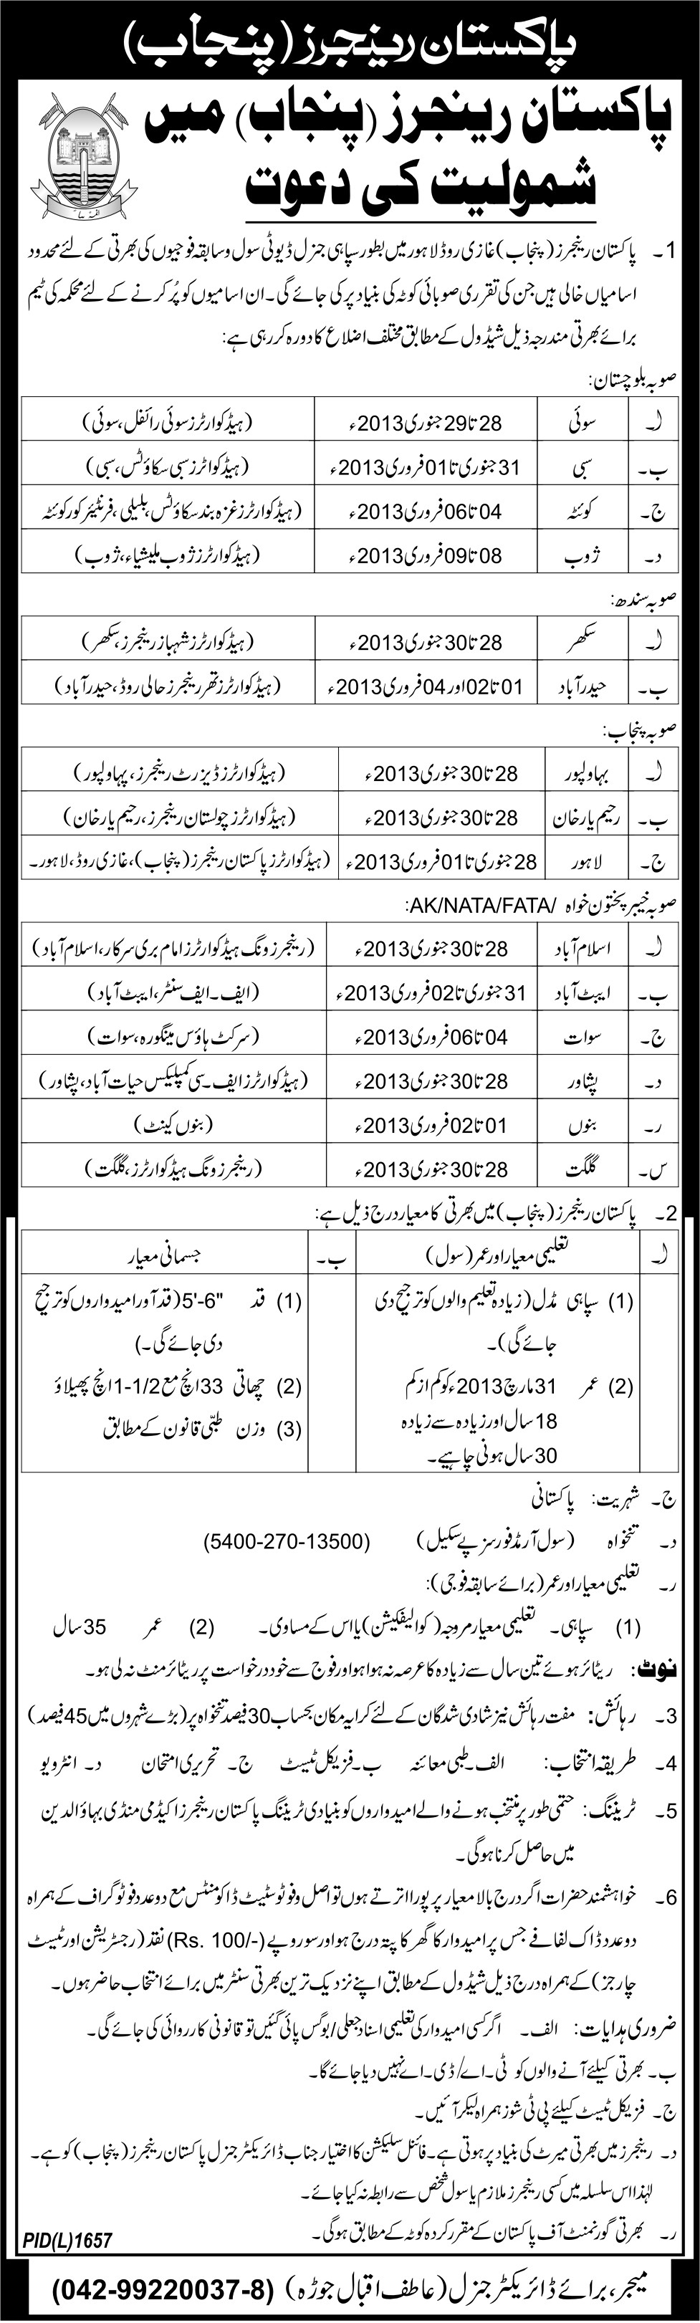 پاکستان رینجرز (پنجاب)
پاکستان رینجرز (پنجاب) میں
شمولیت کی دعوت
1۔ پاکستان رینجرز (پنجاب) غازی روڈ لاہور میں بطور سپاہی جنرل ڈیوٹی سول و سابقہ فوجیوں کی بھرتی کے لئے محدود
اسامیاں خالی ہیں جن کی تقرری صوبائی کوٹہ کی بنیاد پر کی جائے گی۔ ان اسامیوں کو پُر کرنے کے لئے محکمہ کی ٹیم
برائے بھرتی مندرجہ ذیل شیڈول کے مطابق مختلف اضلاع کا دورہ کر رہی ہے:
صوبہ بلوچستان:
ا۔ سوئی 28 تا 29 جنوری 2013ء (ہیڈکوارٹرز سوئی رائفل، سوئی)
ب۔ سبی 31 جنوری تا 01 فروری 2013ء (ہیڈکوارٹرز سبی سکاؤٹس، سبی)
ج۔ کوئٹہ 04 تا 06 فروری 2013ء (ہیڈکوارٹرز غزہ بند سکاؤٹس، بلیلی، فرنٹیئر کور کوئٹہ
د۔ ژوب 08 تا 09 فروری 2013ء (ہیڈکوارٹرز ژوب ملیشیاء، ژوب)
صوبہ سندھ:
ا۔ سکھر 28 تا 30 جنوری 2013ء (ہیڈکوارٹرز شہباز رینجرز، سکھر)
ب۔ حیدرآباد 01 تا 02 اور 04 فروری 2013ء (ہیڈکوارٹرز تھر رینجرز حالی روڈ، حیدرآباد)
صوبہ پنجاب:
ا۔ بہاولپور 28 تا 30 جنوری 2013ء (ہیڈکوارٹرز ڈیزرٹ رینجرز، بہاولپور)
ب۔ رحیم یار خان 28 تا 30 جنوری 2013ء (ہیڈکوارٹرز چولستان رینجرز، رحیم یار خان)
ج۔ لاہور 28 جنوری تا 01 فروری 2013ء (ہیڈکوارٹرز پاکستان رینجرز (پنجاب)، غازی روڈ، لاہور۔
صوبہ خیبر پختون خواہ /AK/NATA/FATA:
ا۔ اسلام آباد 28 تا 30 جنوری 2013ء (رینجرز ونگ ہیڈکوارٹرز امام بری سرکار، اسلام آباد)
ب۔ ایبٹ آباد 31 جنوری تا 02 فروری 2013ء (ایف۔ ایف سنٹر، ایبٹ آباد)
ج۔ سوات 04 تا 06 فروری 2013ء (سرکٹ ہاؤس مینگورہ، سوات)
د۔ پشاور 28 تا 30 جنوری 2013ء (ہیڈکوارٹرز ایف۔ سی کمپلیکس حیات آباد، پشاور)
ر۔ بنوں 01 تا 02 فروری 2013ء (بنوں کینٹ)
س۔ گلگت 28 تا 30 جنوری 2013ء (رینجرز ونگ ہیڈکوارٹرز، گلگت)
2۔ پاکستان رینجرز (پنجاب) میں بھرتی کا معیار درج ذیل ہے:
ا۔ تعلیمی معیار اور عمر (سول)
(1) سپاہی مڈل (زیادہ تعلیم والوں کو ترجیح دی
جائے گی)۔
(2) عمر 31 مارچ 2013ء کو کم از کم
18 سال اور زیادہ سے زیادہ
30 سال ہونی چاہیے۔
ب۔ جسمانی معیار
(1) قد 5'-6" (قد آور امیدواروں کو ترجیح
دی جائے گی۔)
(2) چھاتی 33 انچ مع 1-1/2 انچ پھیلاؤ
(3) وزن طبّی قانون کے مطابق
ج۔ شہریت: پاکستانی
د۔ تنخواہ (سول آرمڈ فورسز پے سکیل) (5400-270-13500)
ر۔ تعلیمی معیار اور عمر (برائے سابقہ فوجی):
(1) سپاہی۔ تعلیمی معیار مروجہ (کوالیفکیشن) یا اس کے مساوی۔ (2) عمر 35 سال
نوٹ: ریٹائر ہوئے تین سال سے زیادہ کا عرصہ نہ ہوا ہو اور فوج سے خود درخواست پر ریٹائرمنٹ نہ لی ہو۔
3۔ رہائش: مفت رہائش نیز شادی شدگان کے لئے کرایہ مکان بحساب 30 فیصد تنخواہ پر (بڑے شہروں میں 45 فیصد)
4۔ طریقہ انتخاب: الف۔ طبی معائنہ ب۔ فزیکل ٹیسٹ ج۔ تحریری امتحان د۔ انٹرویو
5۔ ٹریننگ: حتمی طور پر منتخب ہونے والے امیدواروں کو بنیادی ٹریننگ پاکستان رینجرز اکیڈمی منڈی بہاؤالدین
میں حاصل کرنا ہو گی۔
6۔ خواہشمند حضرات اگر درج بالا معیار پر پورا اترتے ہوں تو اصل و فوٹو سٹیٹ ڈاکومنٹس مع دو عدد فوٹو گراف کے ہمراہ
دو عدد ڈاک لفافے جس پر امیدوار کا گھر کا پتہ درج ہو اور سو روپے (Rs. 100/-) نقد (رجسٹریشن اور ٹیسٹ
چارجز) کے ہمراہ درج ذیل شیڈول کے مطابق اپنے نزدیک ترین بھرتی سنٹر میں برائے انتخاب حاضر ہوں۔
ضروری ہدایات: الف۔ اگر کسی امیدوار کی تعلیمی اسناد جعلی/بوگس پائی گئیں تو قانونی کارروائی کی جائے گی۔
ب۔ بھرتی کیلئے آنے والوں کو ٹی۔ اے/ڈی۔ اے نہیں دیا جائے گا۔
ج۔ فزیکل ٹیسٹ کیلئے پی ٹی شوز ہمراہ لیکر آئیں۔
د۔ رینجرز میں بھرتی میرٹ کی بنیاد پر ہوتی ہے۔ فائنل سلیکشن کا اختیار جناب ڈائریکٹر جنرل پاکستان رینجرز (پنجاب) کو ہے۔
لہٰذا اس سلسلہ میں کسی رینجرز ملازم یا سول شخص سے رابطہ نہ کیا جائے۔
ر۔ بھرتی گورنمنٹ آف پاکستان کے مقرر کردہ کوٹہ کے مطابق ہو گی۔
PID(L)1657
میجر، برائے ڈائریکٹر جنرل (عاطف اقبال جوڑہ) (042-99220037-8)